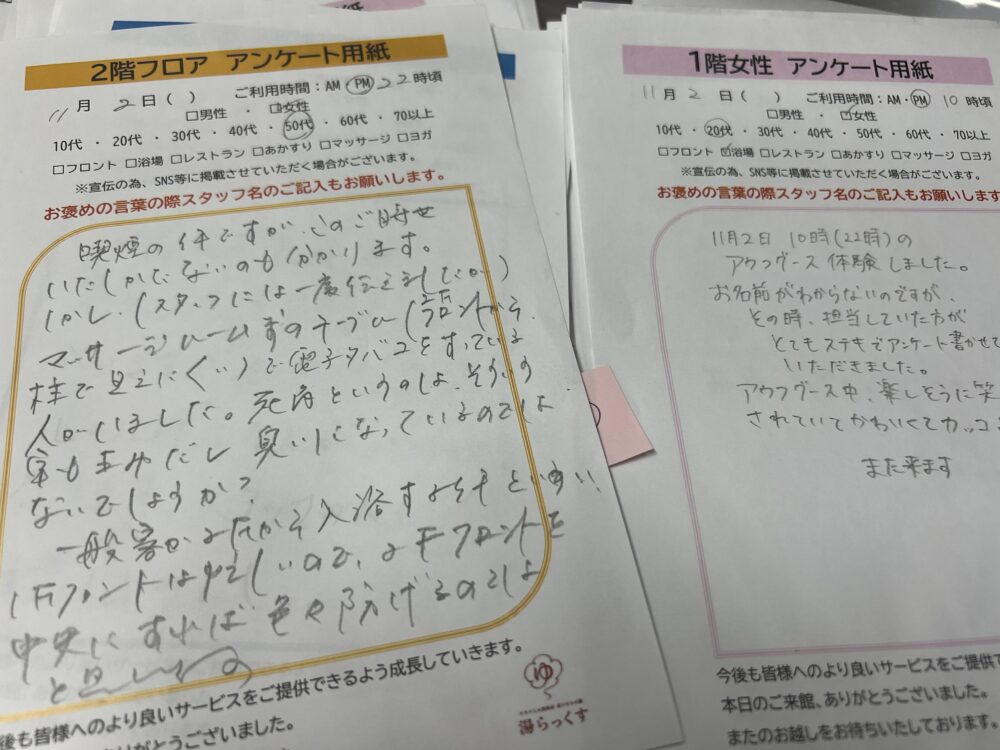 用紙
2階フロア アンケート用紙
11月 2日( ) ご利用時間:AM PM 22時頃
□男性 ・ □女性
10代 ・ 20代 ・ 30代 ・ 40代 ・ 50代 ・ 60代 ・ 70以上
□フロント □浴場 □レストラン □あかすり □マッサージ □ヨガ
※宣伝の為、SNS等に掲載させていただく場合がございます。
お褒めの言葉の際スタッフ名のご記入もお願いします。
喫煙の件ですが、このご時世
いたしかたないのも分かります。
しかし、(スタッフには一度伝えましたが)
マッサージルーム のテーブル(フロントから
柱で見えにくい)で電子タバコをすっている
人がいました。死角というのは、そういう
事も生みだし 臭いしになっているのでは
ないでしょうか?
一般客が2Fから入浴する
1Fフロントは少しいので、2Fフロントを
中央にすれば色々防げるのでは
と思い
後も皆様へのより良いサービスをご提供できるよう成長していきます。
ありがとうございました。
ゆ
湯らっくす
1階女性 アンケート用紙
11月 2日 ( ) ご利用時間:AM・PM 10時頃
□男性 ・ □女性
10代 ・ 20代 ・ 30代 ・ 40代 ・ 50代 ・ 60代 ・ 70以上
□フロント ☑浴場 □レストラン □あかすり □マッサージ □ヨガ
※宣伝の為、SNS等に掲載させていただく場合がございます。
お褒めの言葉の際スタッフ名のご記入もお願いします
11月2日 10時(22時)の
アウフグース 体験しました。
お名前がわからないのですが、
その時、担当していた方が
とてもステキでアンケート書かせて
いただきました。
アウフグース中、楽しそうに笑
されていてかわいくてカッコ
また来ます
今後も皆様へのより良いサービスをご提供で
本日のご来館、ありがとうございました。
またのお越しをお待ちいたしております。